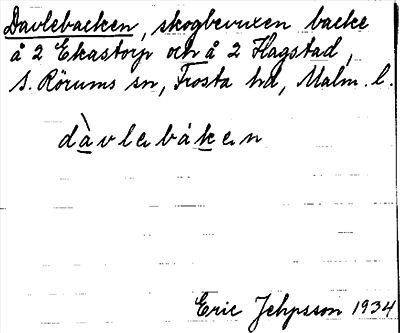 Davlebacken, skogbevuxen backe
å 2 Ekastorp och å 2 Hagstad,
S. Rörums sn, Frosta hd, Malm. l.
dàvlebáken
Eric Jehpsson 1934